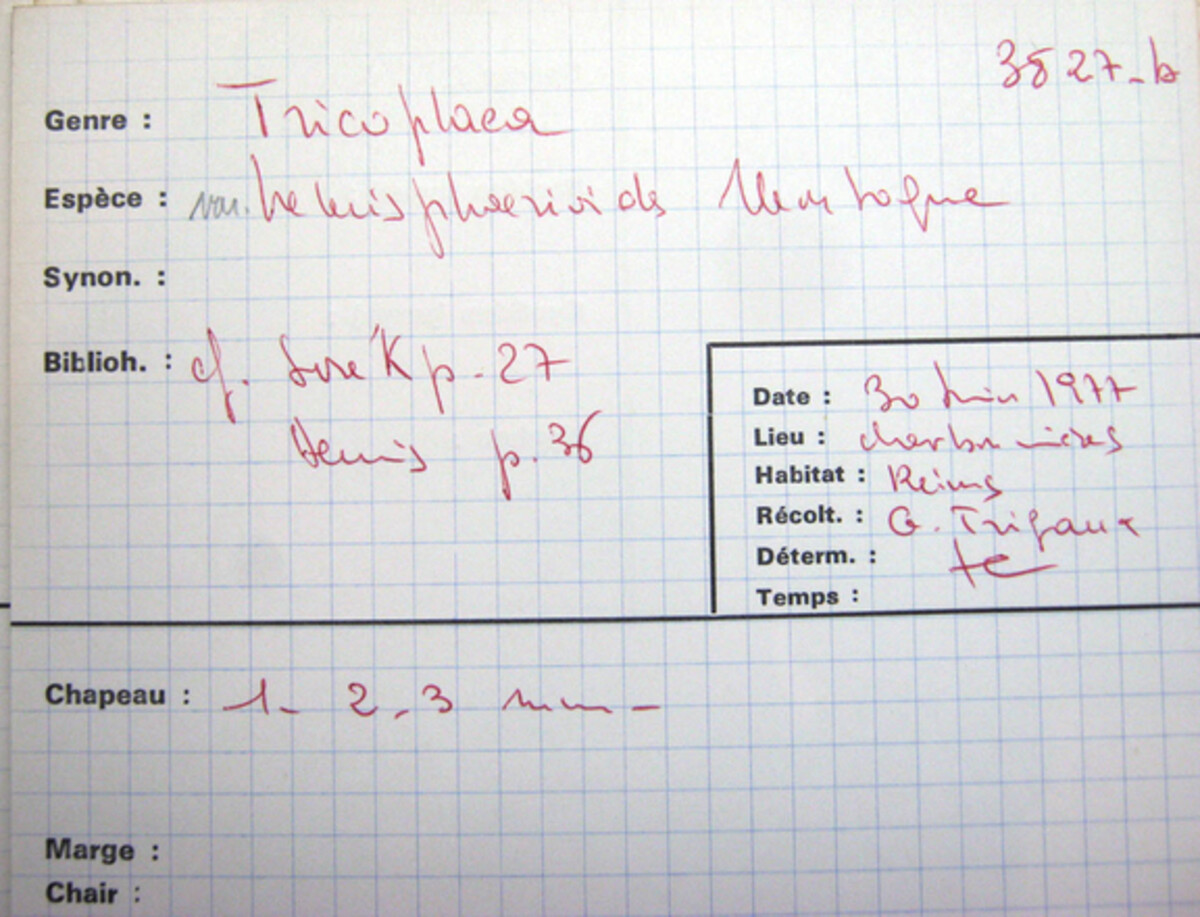 3827-b
Genre : Tricophaea
Espèce : var. hemisphaerioides Mentagne
Synon. :
Biblioh. : cf. Svrék p. 27
Denis p. 36
Date : 30 Juin 1977
Lieu : charbonnières
Habitat : Reims
Récolt. : G. Trigaux
Déterm. :
Temps :
Chapeau : 1 - 2 - 3 mm -
Marge :
Chair :